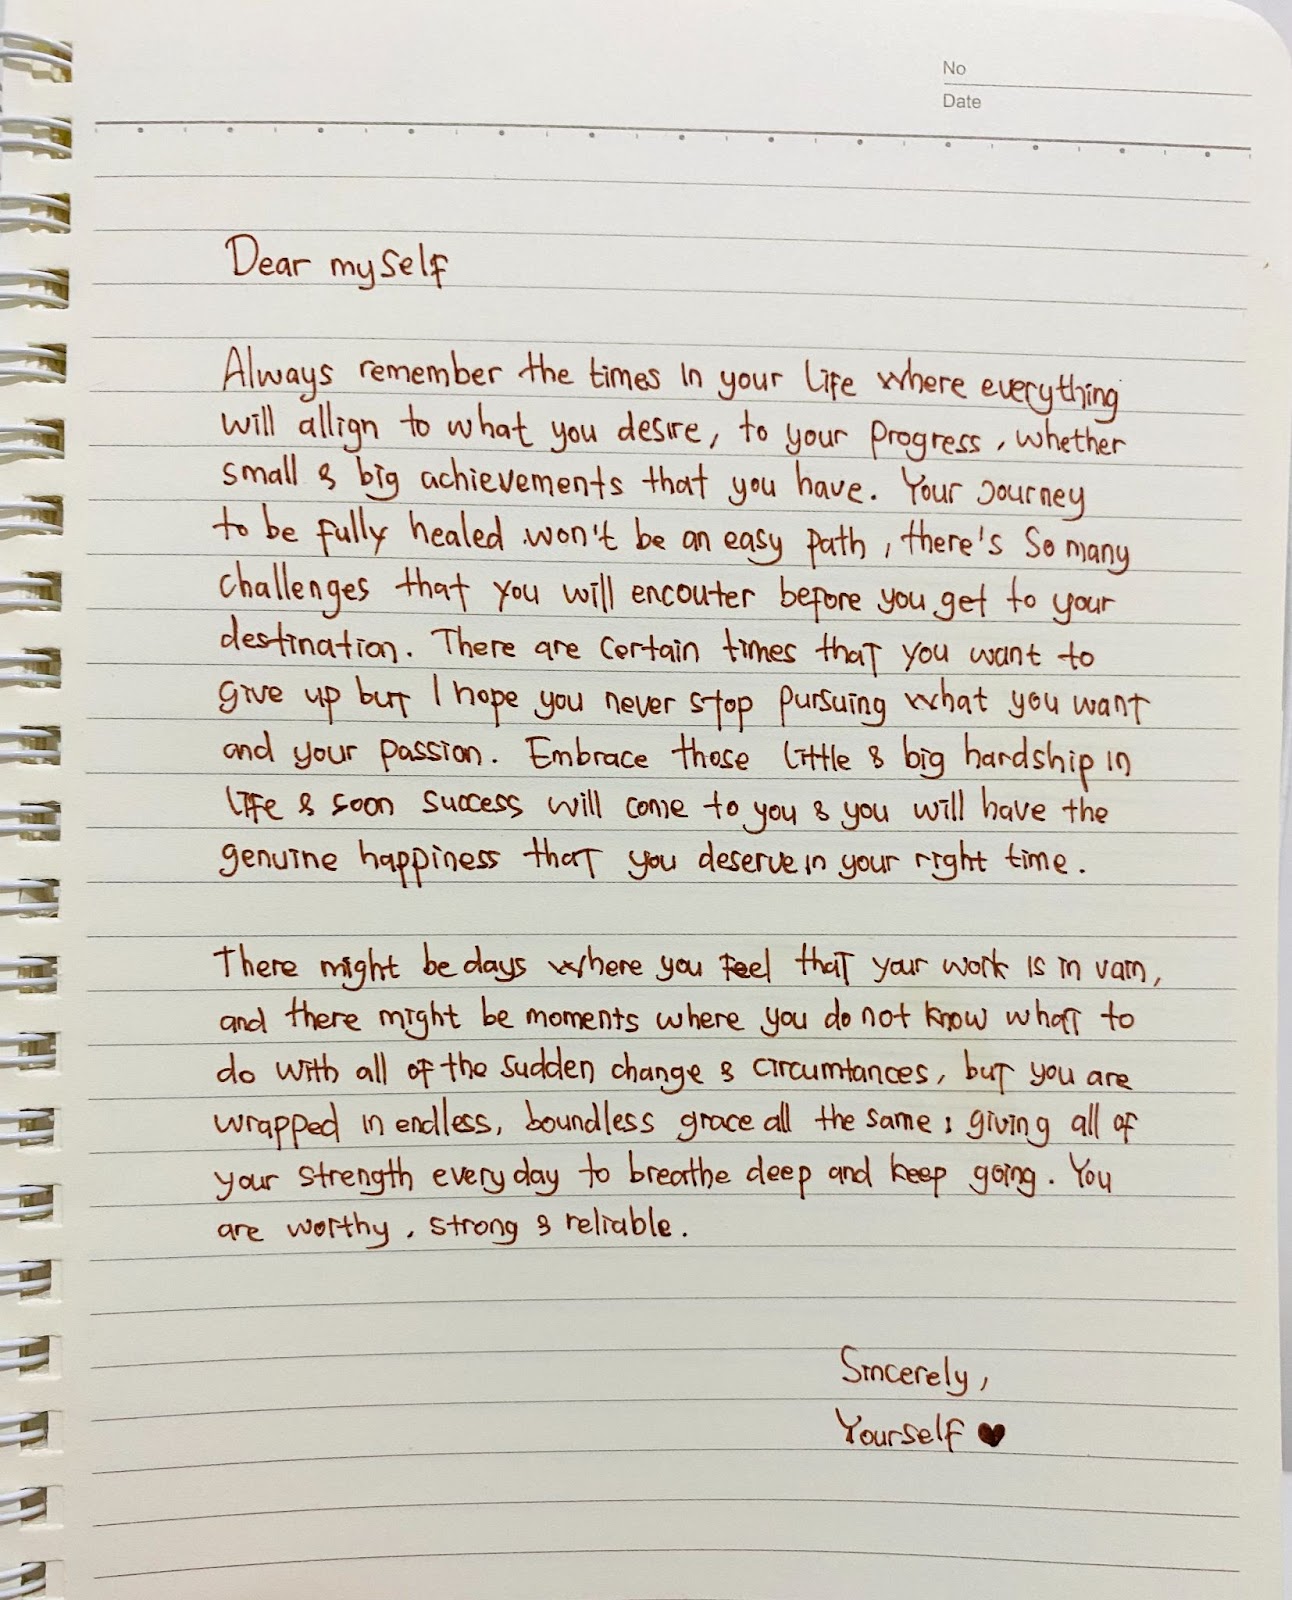 No
Date
Dear myself
Always remember the times in your life where everything
will allign to what you desire, to your progress, whether
small & big achievements that you have. Your journey
to be fully healed won't be an easy path, there's so many
challenges that you will encouter before you get to your
destination. There are certain times that you want to
give up but I hope you never stop pursuing what you want
and your passion. Embrace those little & big hardship in
life & soon success will come to you & you will have the
genuine happiness that you deserve in your right time.
There might be days where you feel that your work is in vain,
and there might be moments where you do not know what to
do with all of the sudden change & circumtances, but you are
wrapped in endless, boundless grace all the same; giving all of
your strength everyday to breathe deep and keep going. You
are worthy, strong & reliable.
Sincerely,
Yourself ♥